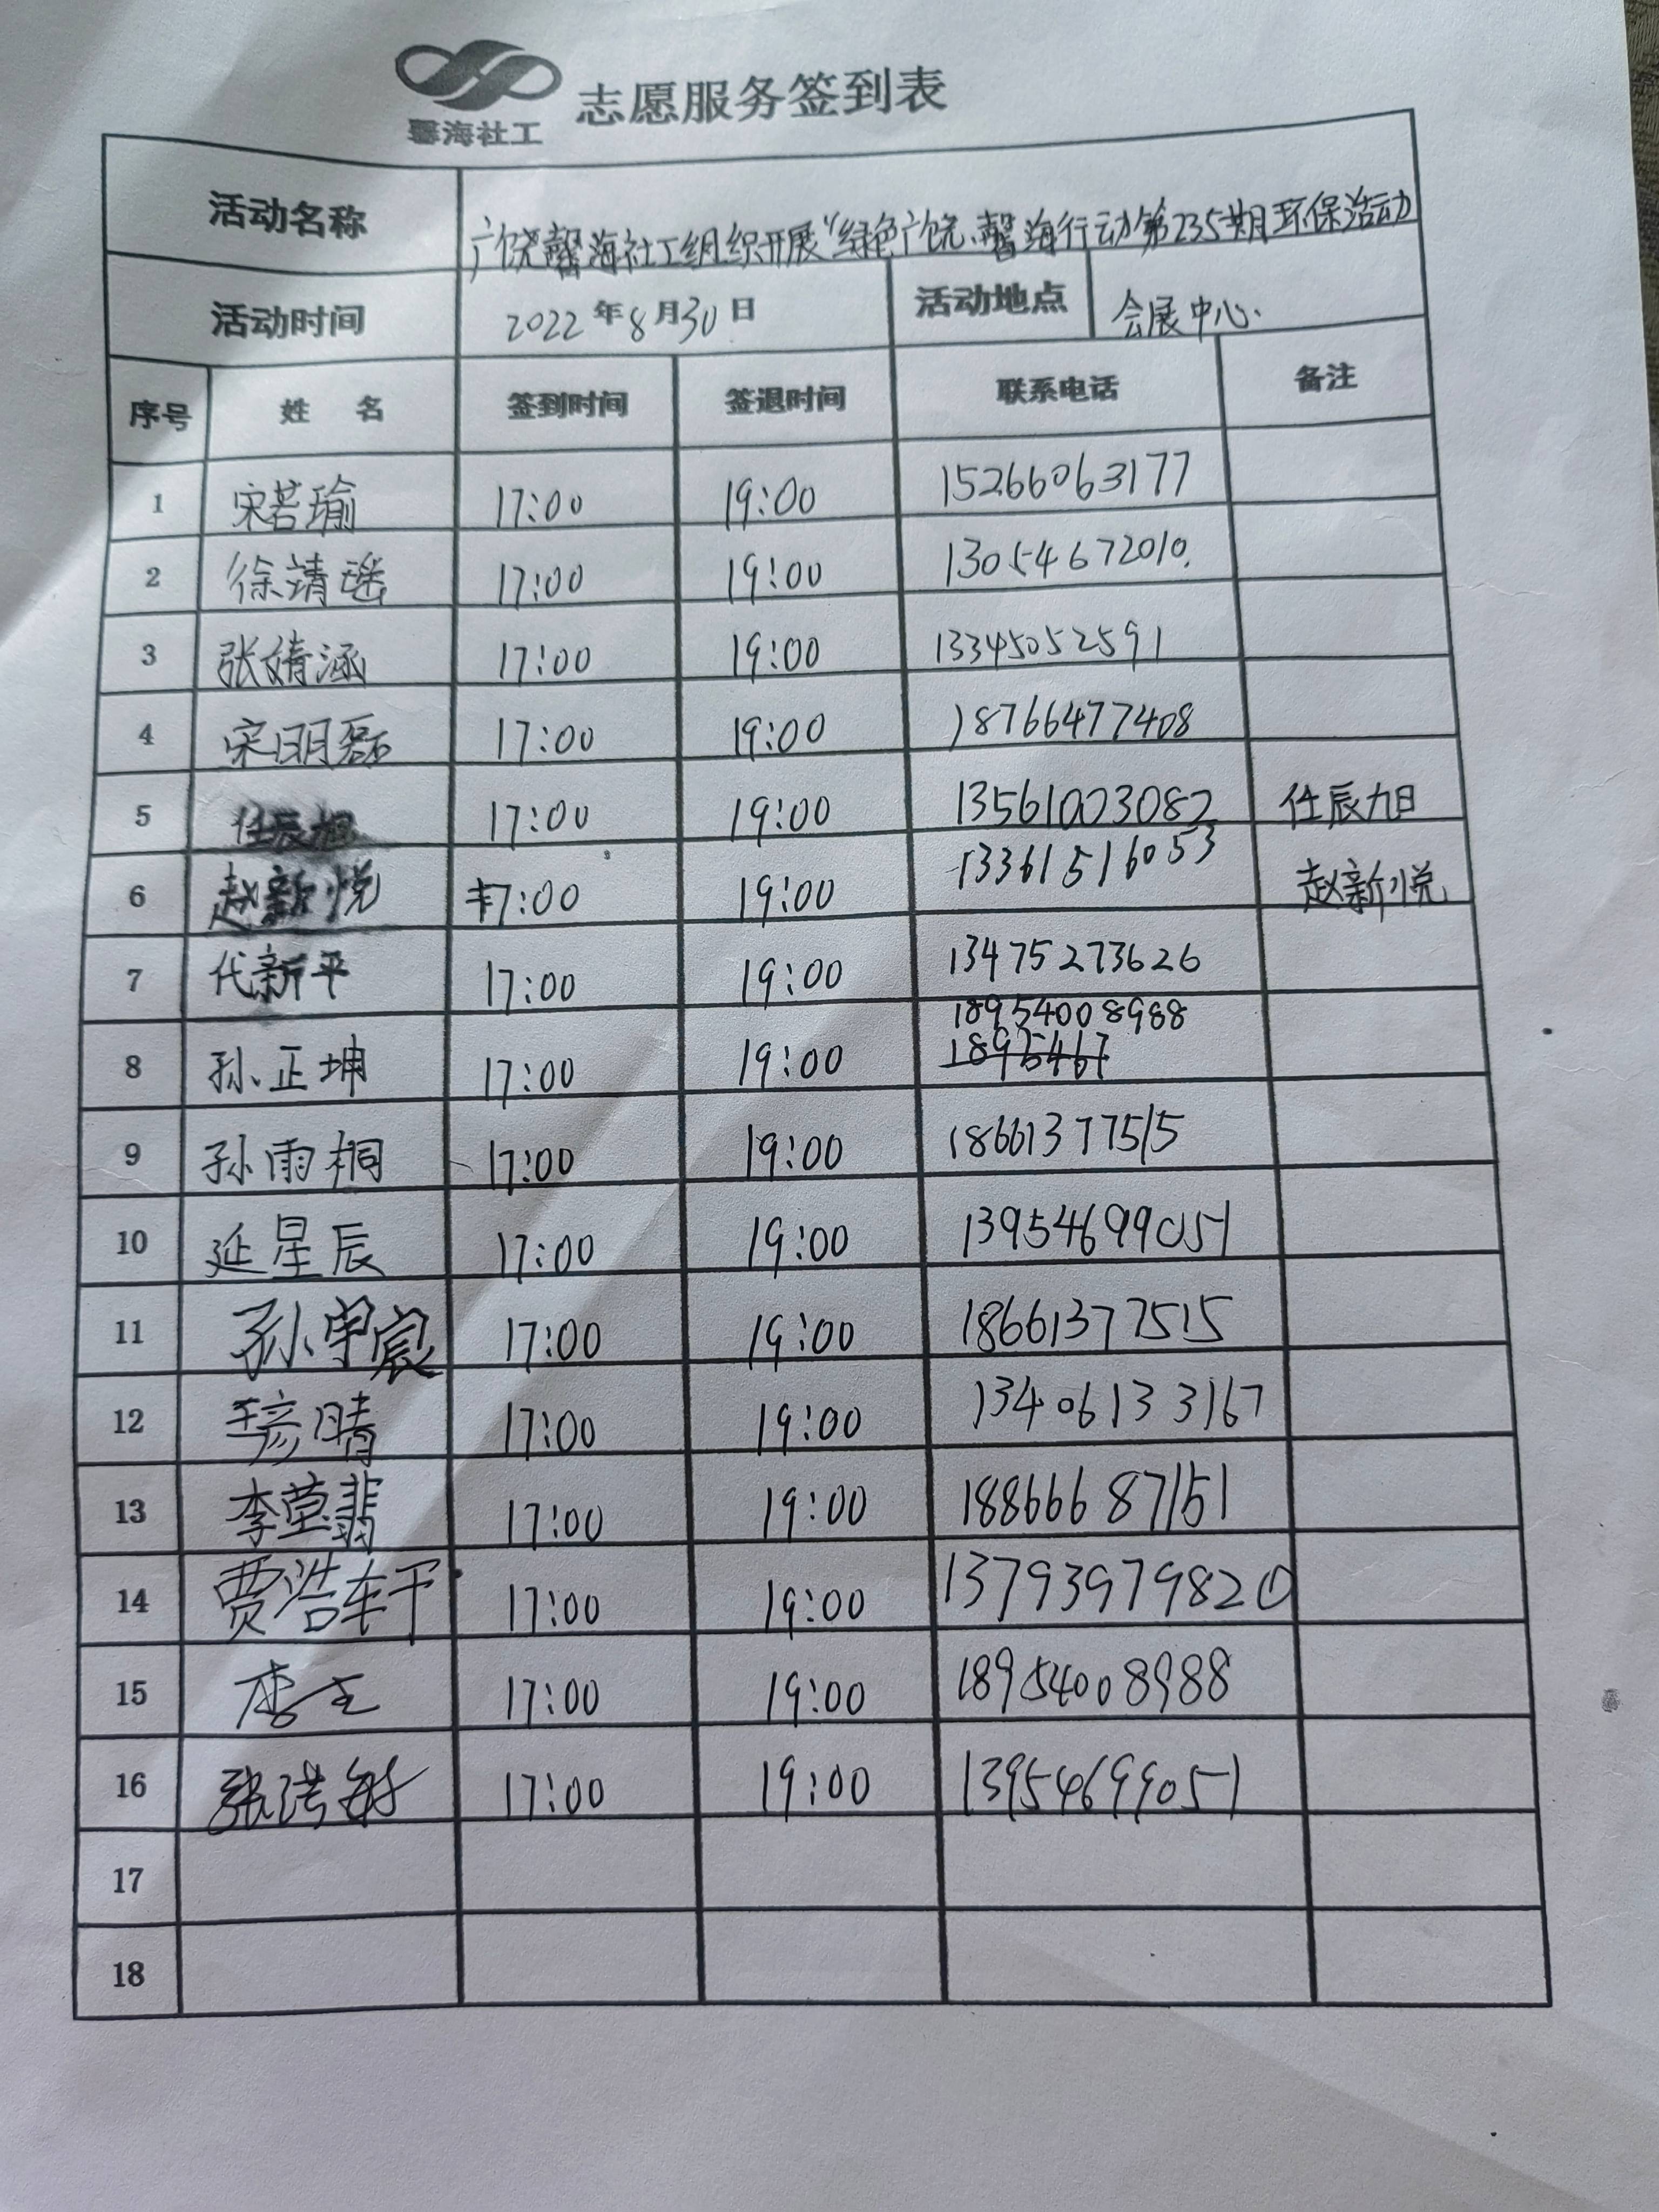 志愿服务签到表
馨海社工
活动名称 广饶馨海社工组织开展“绿色广饶、馨海行动第235期环保活动
活动时间 2022年8月30日 活动地点 会展中心.
序号 姓 名 签到时间 签退时间 联系电话 备注
1 宋若瑜 17:00 19:00 15266063177
2 徐靖瑶 17:00 19:00 13054672010.
3 张婧涵 17:00 19:00 13345052591
4 宋明磊 17:00 19:00 18766477408
5 任辰旭 17:00 19:00 13561003082 任辰旭
6 赵新悦 17:00 19:00 13361516053 赵新悦
7 代新平 17:00 19:00 13475273626
18954008988
8 孙正坤 17:00 19:00 1895467
9 孙雨桐 17:00 19:00 18661377515
10 延星辰 17:00 19:00 13954699051
11 孙宇宸 17:00 19:00 18661377515
12 王彦晴 17:00 19:00 13406133167
13 李莹翡 17:00 19:00 18866687151
14 贾浩轩 17:00 19:00 13793979820
15 李 17:00 19:00 18954008988
16 张洪敏 17:00 19:00 13954699051
17
18